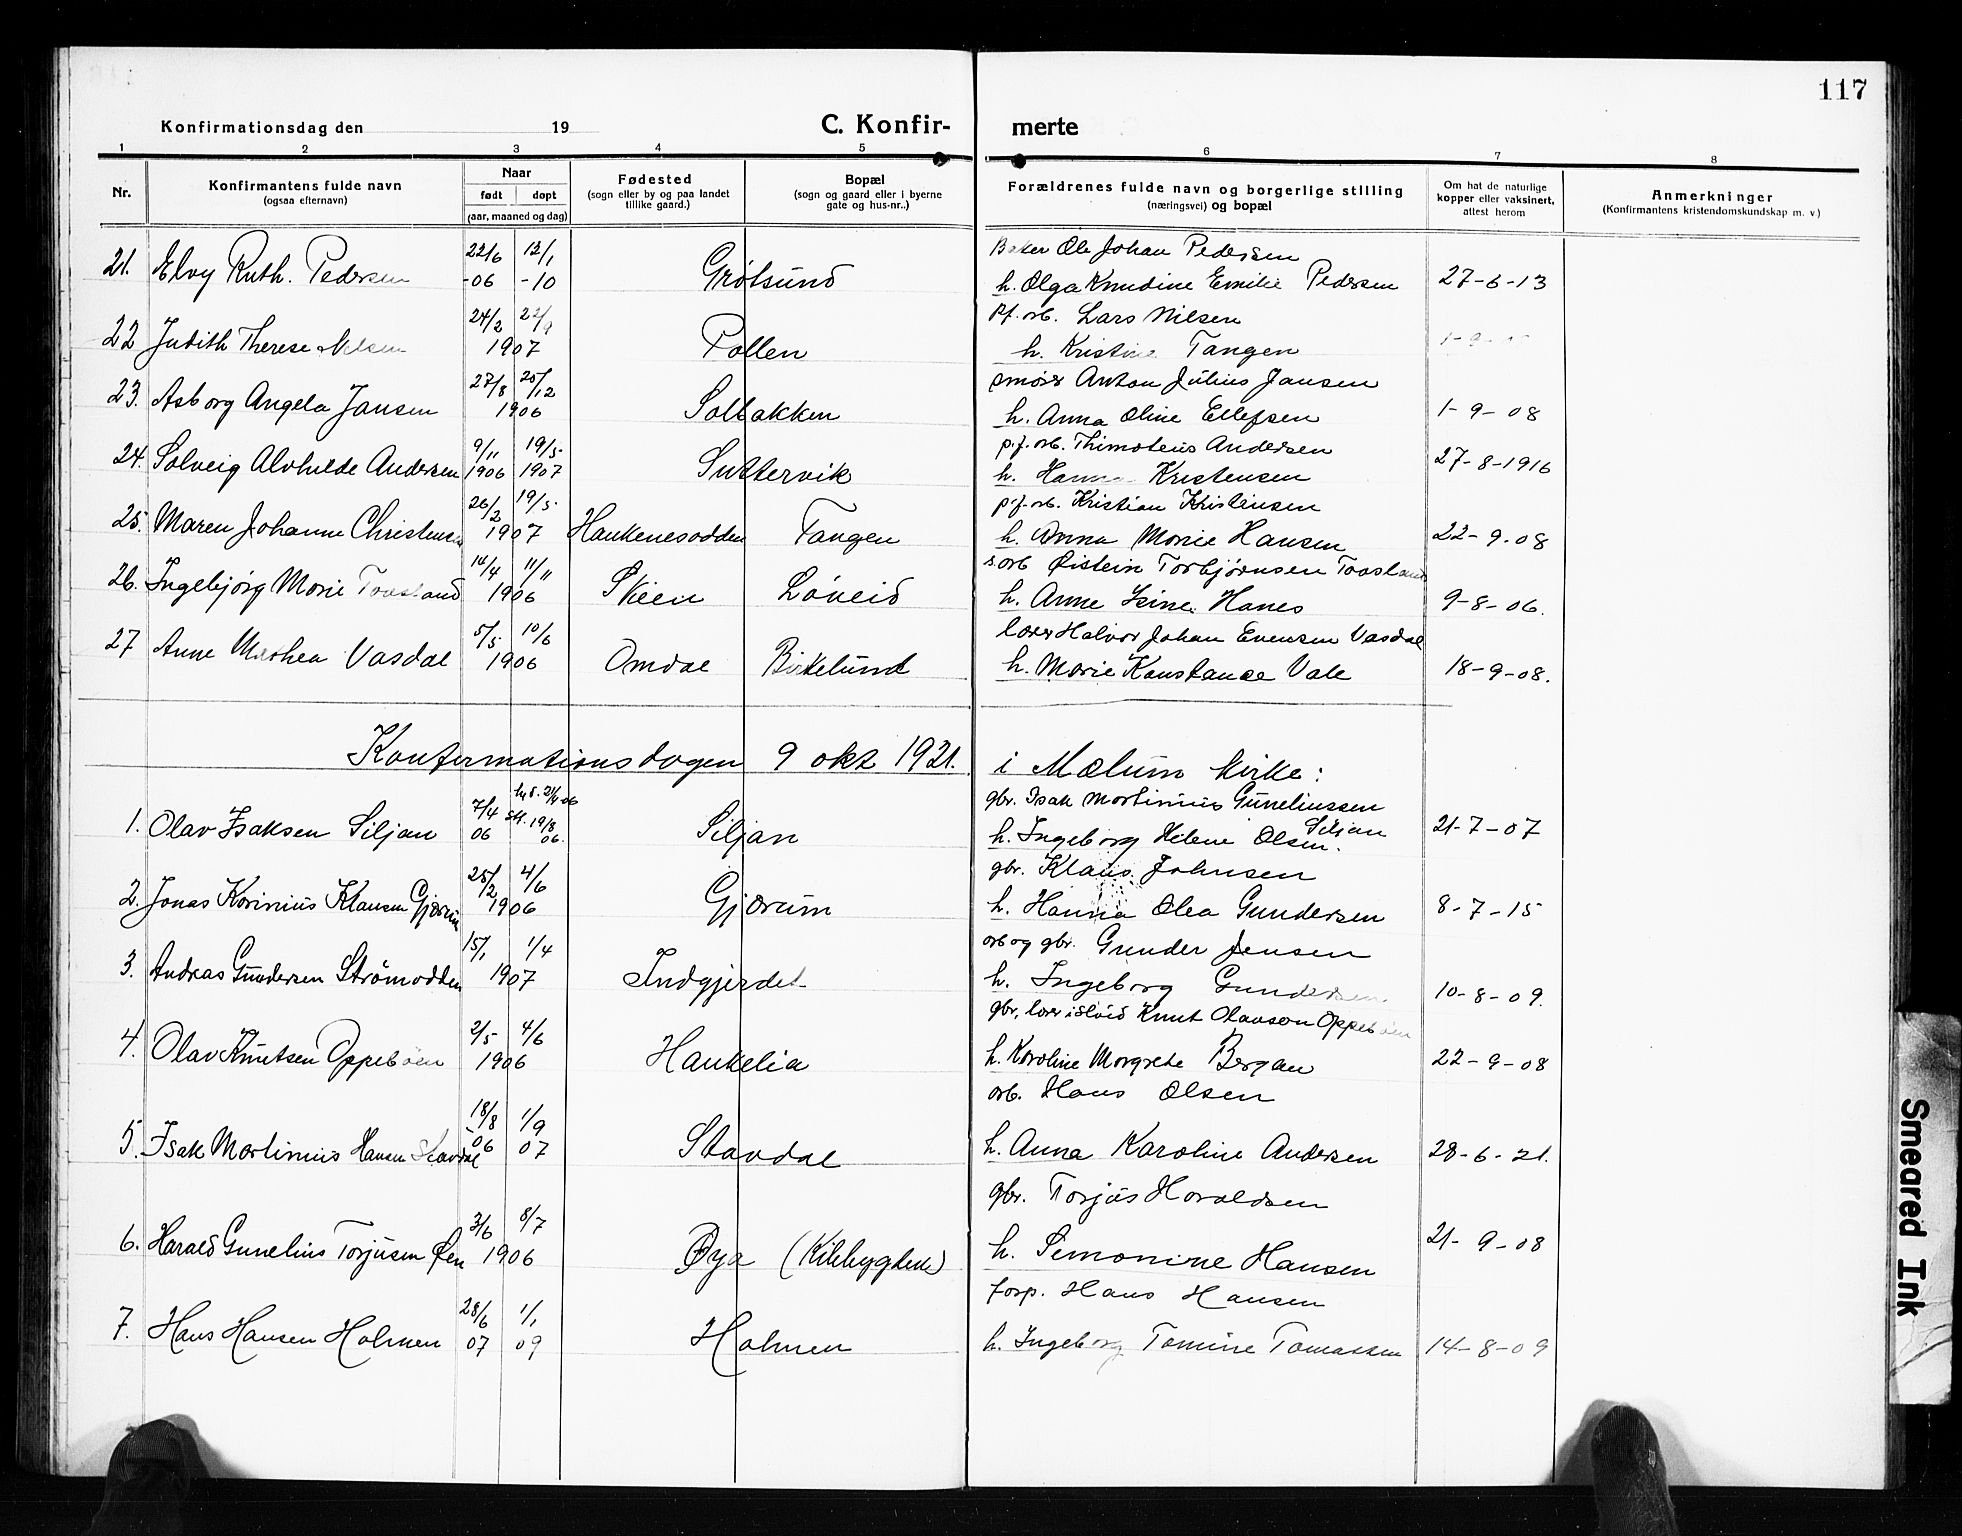 117
Konfirmationsdag den 19
C. Konfir-
merte
1 2 3 4 5 6 7 8
Nr.
Konfirmantens fulde navn
(ogsaa efternavn)
Naar
født døpt
(aar, maaned og dag)
Fødested
(sogn eller by og paa landet
tillike gaard.)
Bopæl
(sogn og gaard eller i byerne
gate og hus-nr..)
Forældrenes fulde navn og borgerlige stilling
(næringsvei) og bopæl
Om hat de naturlige
kopper eller vaksinert,
attest herom
Anmerkninger
(Konfirmantens kristendomskundskap m. v.)
21. Elvy Ruth. Pedersen 22/6 -06 13/1 -10 Grøtsund
Baker Ole Johan Pedersen
h. Olga Knudine Emilie Pedersen 27-6-13
22 Judith Therese Nilsen 24/2 22/9 1907 Pollen
pf. arb. Lars Nilsen
h. Kristine Tangen
23. Asborg Angela Jansen 27/8 25/12 1906 Solbakken
smører Anton Julius Jansen
h. Anna Oline Ellefsen 1-9-08
24. Solveig Alvhilde Andersen 9/11 1906 19/5 1907 Suttervik
p.f. arb. Thimoteus Andersen
h. Hanna Kristensen 27-8-1916
25. Maren Johanne Christensen 26/2 19/5 1907 Haukenesodden Tangen
p.f. arb. Kristian Kristensen
h. Anna Marie Hansen 22-9-08
26. Ingebjørg Marie Traaland 14/4 11/11 1906 Skien Løveid
s.arb Øistein Torbjørnsen
h. Anne Hanes 9-8-06.
27 Anne Marthea Vasdal 5/5 10/6 1906 Omdal Birkelund
lærer Halvor Johan Evensen Vasdal
h. Marie Konstance Vale 18-9-08.
Konfirmationsdagen 9 okt 1921. i Mælum kirke:
1. Olav Isaksen Siljan 7/4 06 hjd. 21/4 06 stf. 19/8 06. Siljan
gbr. Isak Martinius Guneliussen Siljan
h. Ingeborg Helene Olsen. 21-7-07
2. Jonas Korinius Klausen Gjærum 25/2 4/6 1906 Gjærum
gbr. Klaus Johnsen
h. Hanna Olea Gundersen 8-7-15
3. Andreas Gundersen Strømodden 15/1 1/4 1907 Indgjerdet
arb og gbr. Gunder Jensen
h. Ingeborg Gundersen. 10-8-09.
4. Olav Knutsen Oppebøen 2/5 4/6 1906 Haukelia
gbr, lærer i Knut Olavson Oppebøen
h. Karoline Margrete Bergan 22-9-08
5. Isak Martinius Hansen Stavdal 18/8 06 1/9 07 Stavdal
arb. Hans Olsen
h. Anna Karoline Andersen 28-6-21.
6. Harald Gunelius Torjusen Øen 3/6 8/7 1906 Øya (Kilebygden)
gbr. Torjus Haraldsen
h. Semonine Hansen 21-9-08
7. Hans Hansen Holmen 28/6 07 1/1 09 Holmen
forp. Hans Hansen
h. Ingeborg Tomine Tomassen 14-8-09
Smeared Ink